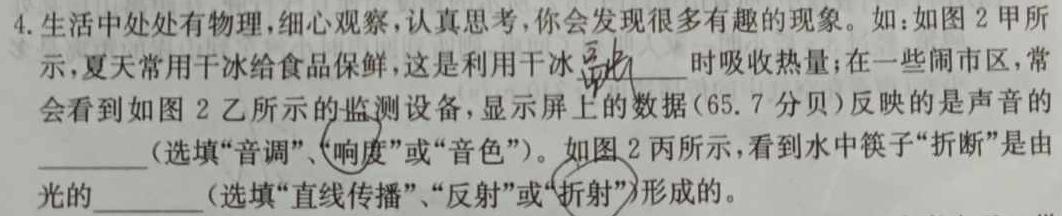 4. 生活中处处有物理,细心观察,认真思考,你会发现很多有趣的现象。如:如图 2 甲所
示,夏天常用干冰给食品保鲜,这是利用干冰________时吸收热量;在一些闹市区,常
会看到如图 2 乙所示的监测设备,显示屏上的数据(65.7 分贝)反映的是声音的
________(选填“音调”、“响度”或“音色”)。如图 2 丙所示,看到水中筷子“折断”是由
光的________(选填“直线传播”、“反射”或“折射”)形成的。